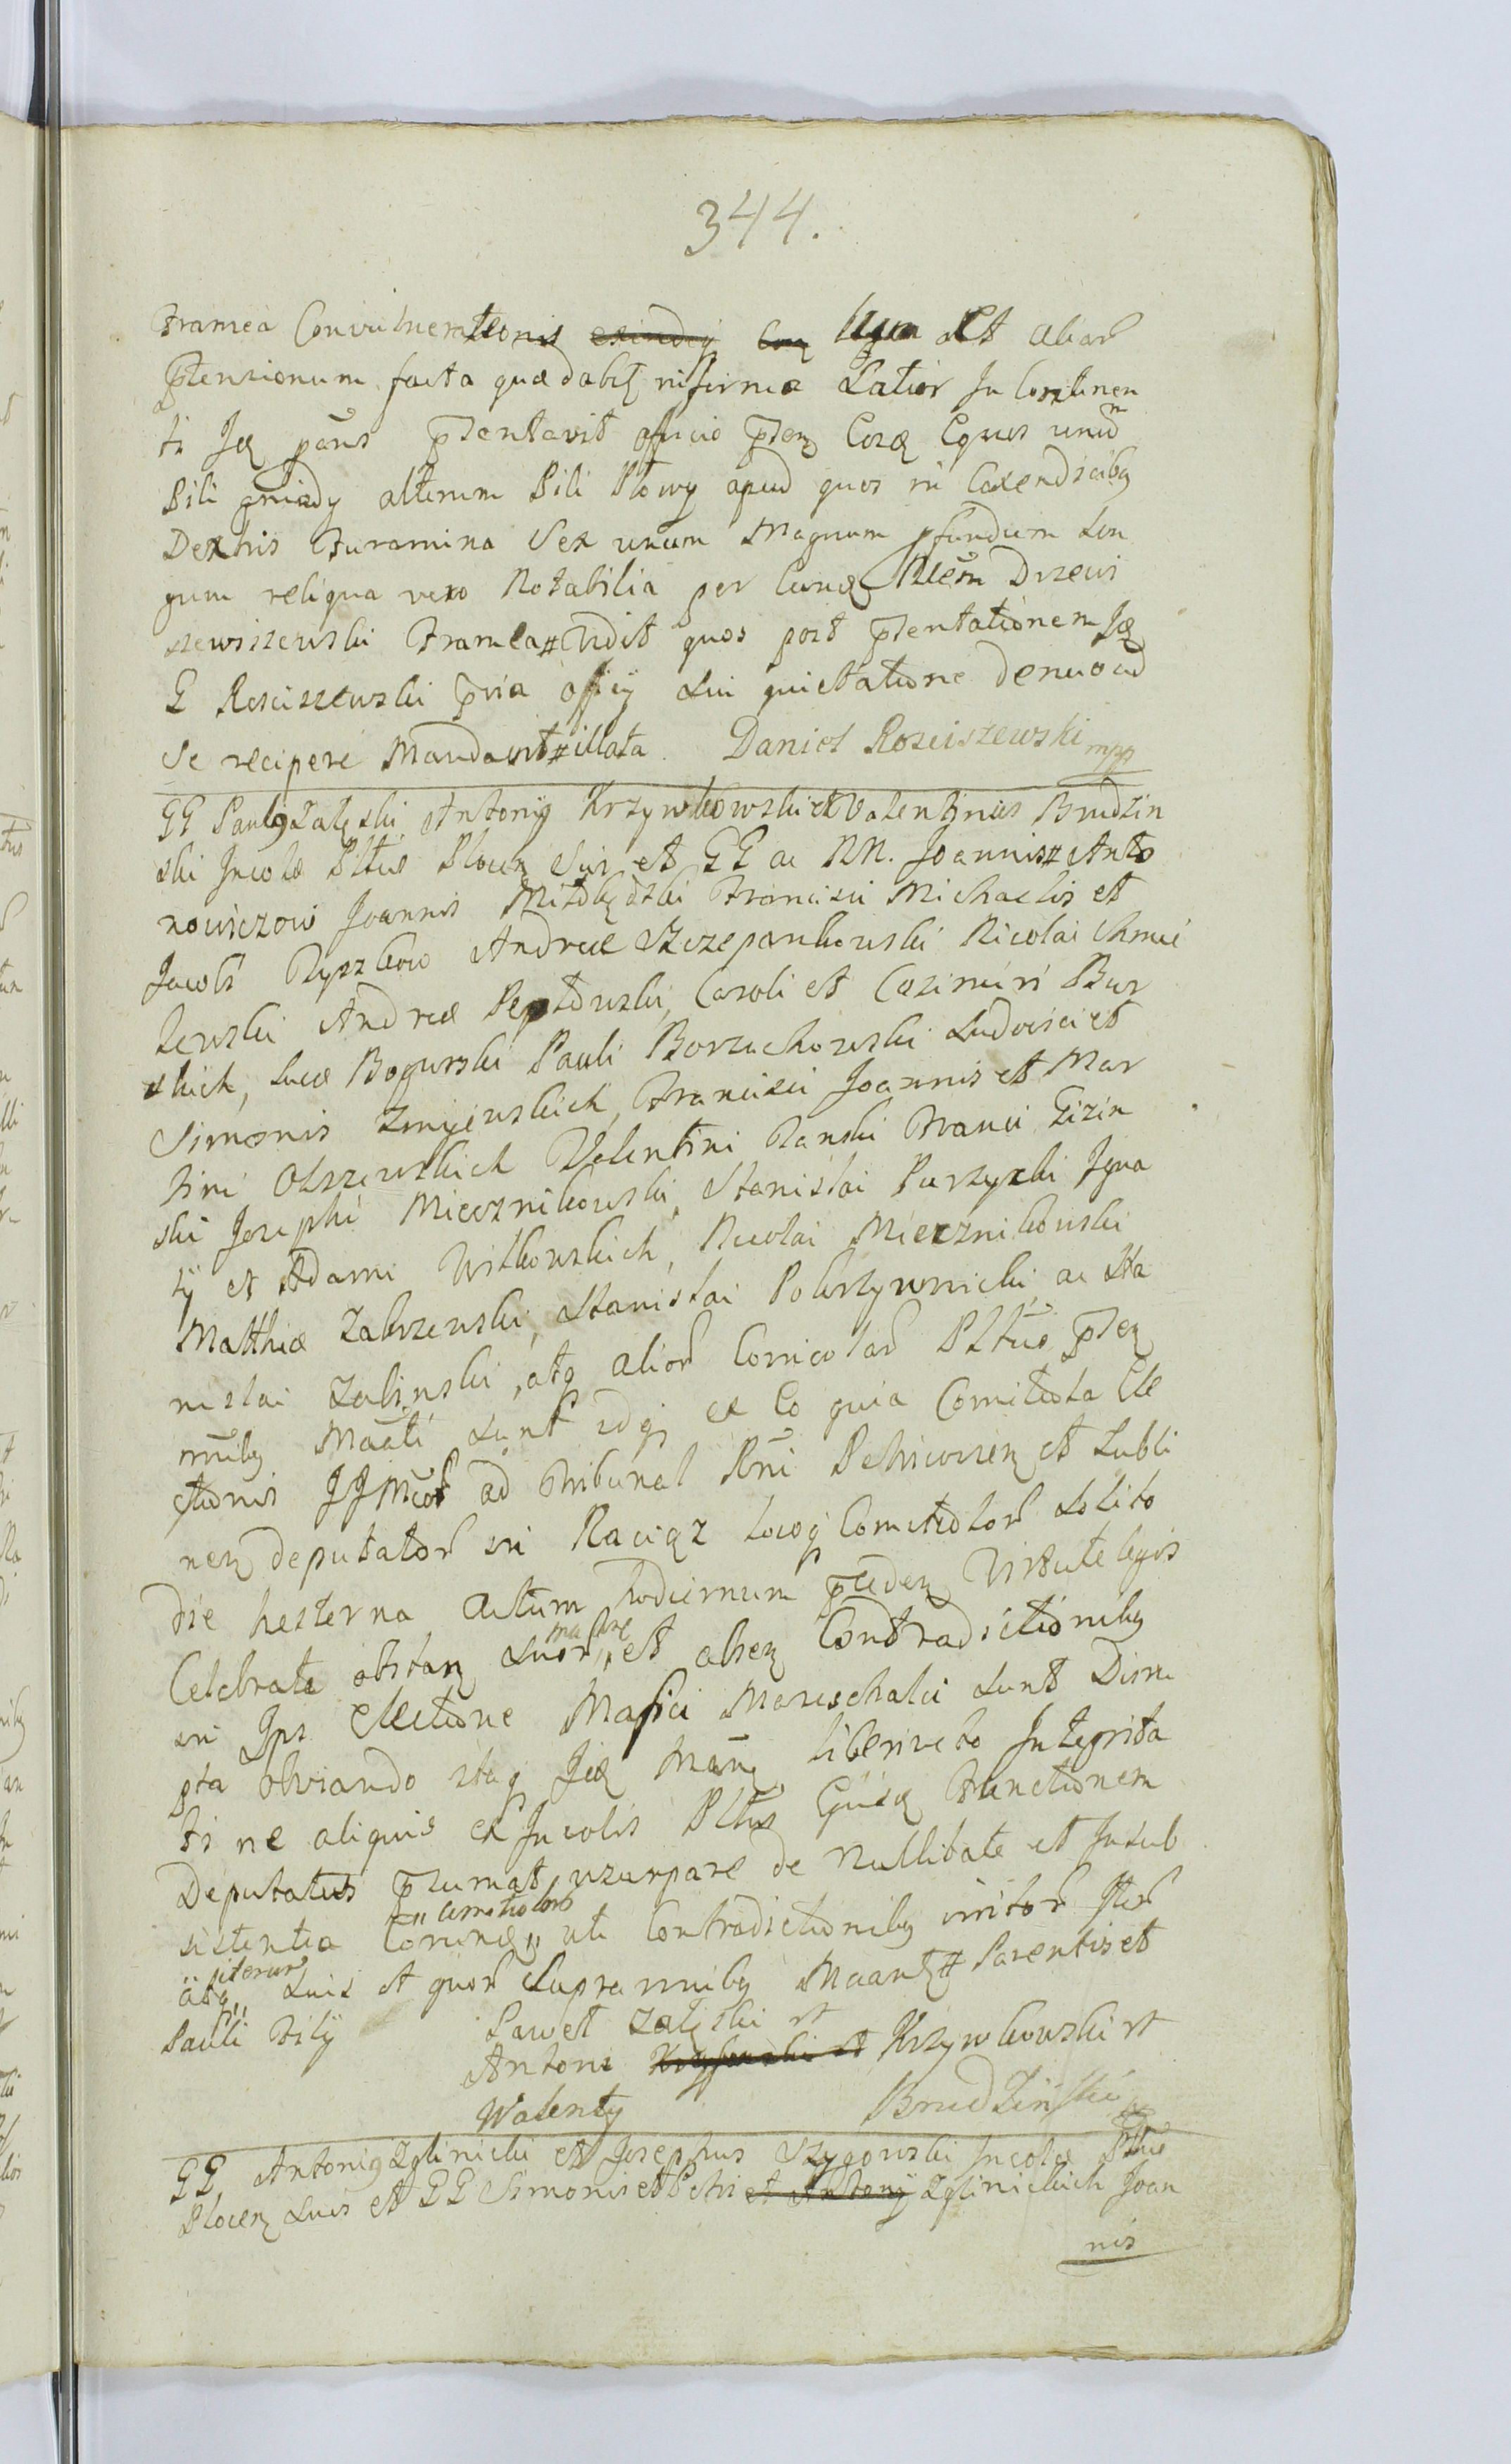 344.
Framea Convulnerationis exindeq; Eoq; Equa et aliar
ptensionum facta quæ dabit inferius Latior In Continen
ti Idq pañs ptentavit officio pten Coræ Equos unum
Pili gniady alterum Pili Płowy apud quos in Coxendicibq
Dextris Foramina Sex unum Magnum pfundum Lon
gum reliqua vero Notabilia per eund Drzewi
szewiszewski Framea# Vidit quos post ptentationem Idq
G Rosciszewski pvia officij Sui quietatione denuo ad
Se recipere Mandavit #illata. Daniel Rosciszewski mpp
GG Paulq Załęski, Antonijq Krzywkowski et Valentinus Brudzin
ski Incolæ Pltus Plocen Suis et GG ac NN. Joannis # Anto
nowiczow Joannis Miłobędzki Francisci Michaelis et
Jacobi Ryszkow Andreæ Szczepankowski Nicolai Chmie
lewski Andreæ Peptowski, Caroli et Casimiri Bur
skich, Lucæ Bogurski Pauli Borzuchowski Ludovici et
Simonis Zmijewskich, Francisci Joannis et Mar
tini Olszewskich Valentini Ranski Franci Gizin
ski Josephi Miecznikowski, Stanislai Purzycki Igna
tij et Adami Witkowskich, Nicolai Miecznikowski
Matthiæ Zakrzewski, Stanislai Pokrzywnicki, ac Sta
nislai Zabinski, atq alior Comicolar Pltus pten
nnibq Maãti Sunt idq; ex Eo quia Comitiola Ele
ctionis JJMcor ad Tribunal Rñi Petricovien et Lubli
nen deputator in Raciąz locoq; Comitiolor Solito
die hesterna actum hodiernum pceden Virtute legis
Celebrata obstan Suor et absen Contradictionibq
in Ips Electione Mafici Mareschalci Sunt Disru
pta Obviando itaq Idq Mañ, liberi veto Integrita
ti ne aliquis ex Incolis Pltus Ejusd Functionem
Deputatus psumat uzurpare de Nullitate et Insub
sistentia Eorund „ Comitiolor uti Contradictionibq initor Iter
atq „ iterum Suis et quor Supra nnibq Maant # Parentis et
Pauli Filij Paweł Załęski rt
Antoni Krzywkowski rt
Walenty Brudzinski
GG, Antoniq Zglinicki et Josephus Szygowski Incolæ Pltus
Plocen Suis et GG Simonis et Petri et Antonij Zglinickich Joan
nis